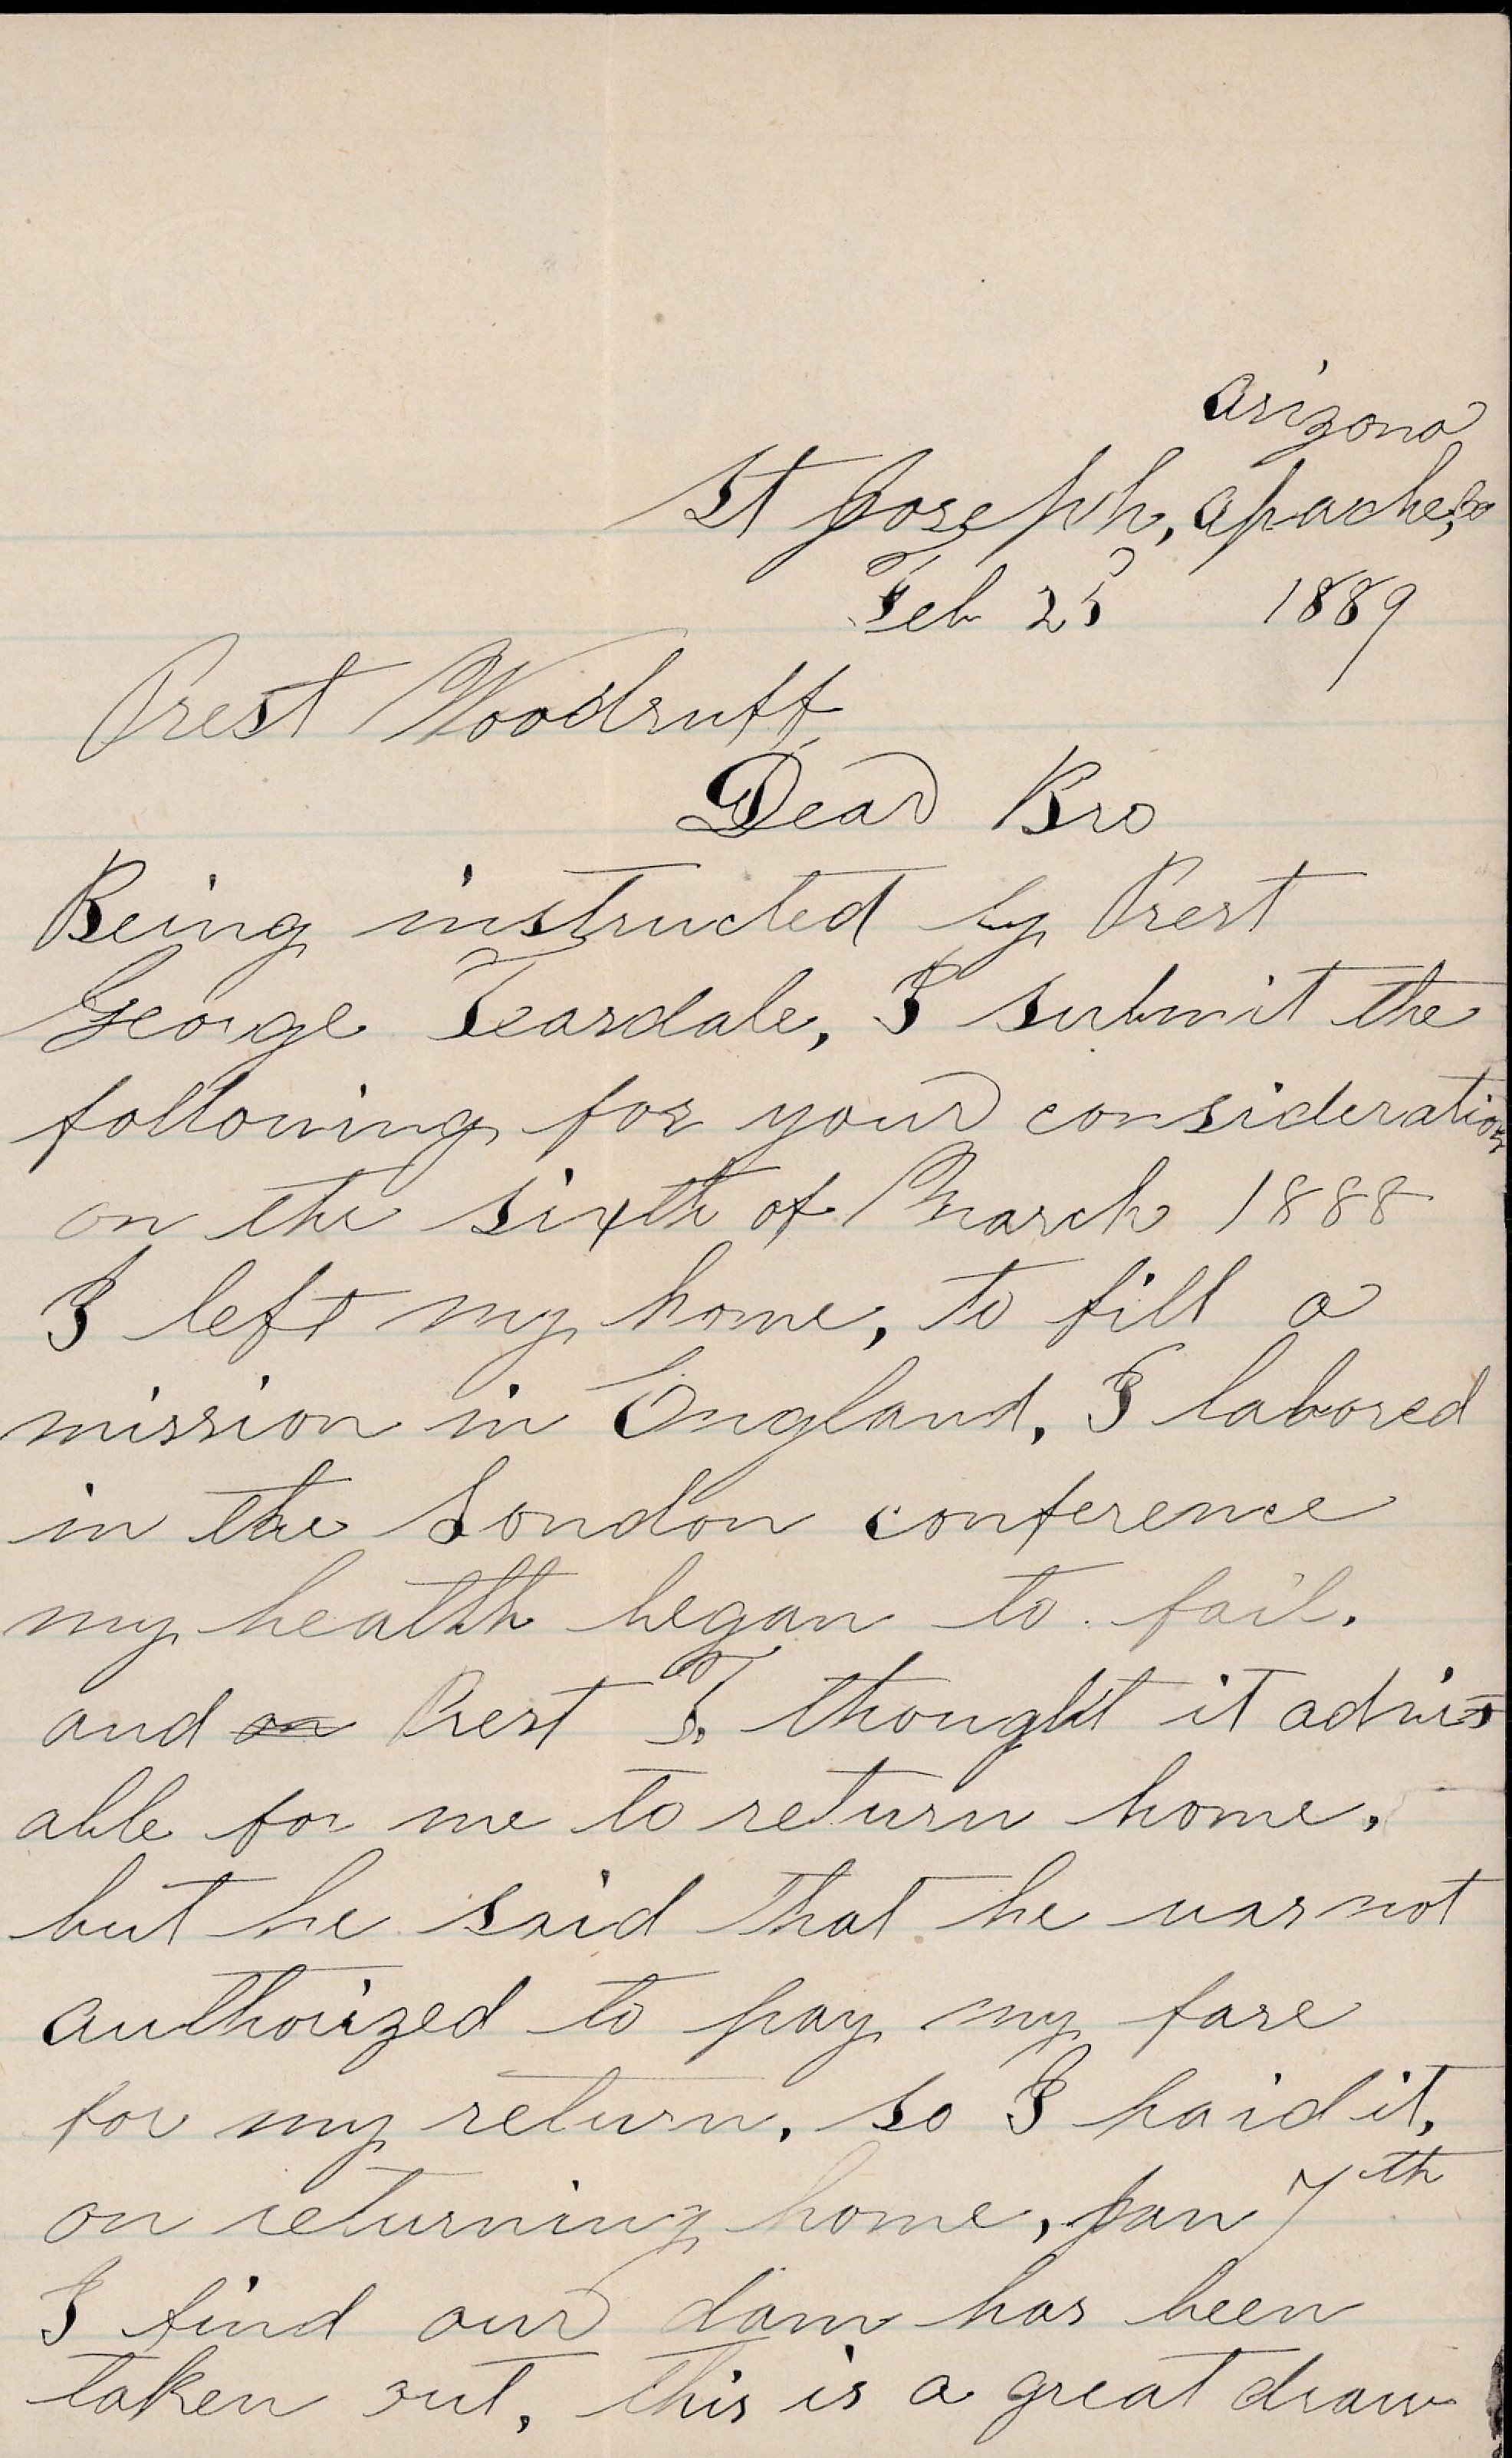 Arizona
St Joseph, Apache, Co
Feb 25 1889
Prest Woodruff
Dear Bro
Being instructed by Prest
George Teasdale, I submit the
following for your consideration
on the sixth of March 1888
I left my home, to fill a
mission in England, I labored
in the London conference
my health began to fail.
and on Prest T. thought it advis
able for me to return home,
but he said that he was not
authorized to pay my fare
for my return, so I paid it,
on returning home, Jan 7th
I find our dam has been
taken out, this is a great draw